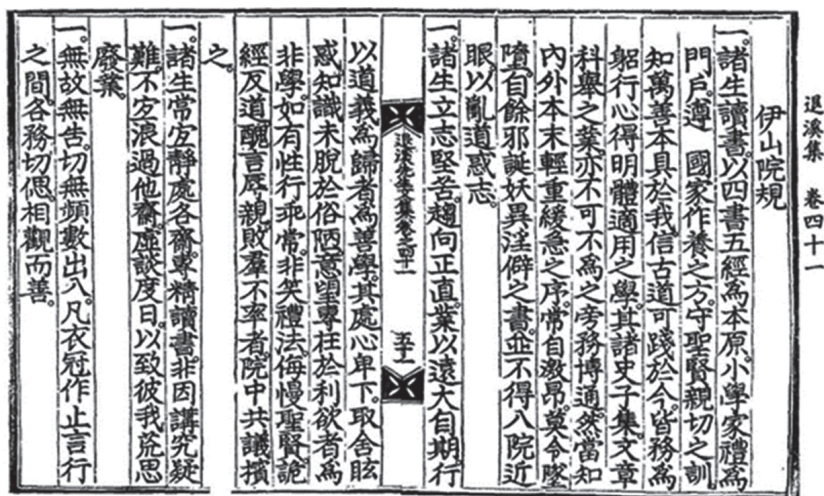 退溪集 卷四十一
伊山院規
一。諸生讀書。以四書五經爲本原。小學家禮爲
門戶。遵 國家作養之方。守聖賢親切之訓。
知萬善本具於我。信古道可踐於今。皆務爲
躳行心得明體適用之學。其諸史子集。文章
科擧之業。亦不可不爲之旁務博通。然當知
內外本末輕重緩急之序。常自激昂。莫令墜
墮。自餘邪誕妖異淫僻之書。並不得入院近
眼。以亂道惑志。
一。諸生立志堅苦。趨向正直。業以遠大自期。行
退溪先生文集卷之四十一 五十一
以道義爲歸者爲善學。其處心卑下。取舍眩
惑。知識未脫於俗陋。意望專在於利欲者爲
非學。如有性行乖常。非笑禮法。侮慢聖賢。詭
經反道。醜言辱親。敗羣不率者。院中共議擯
之。
一。諸生常宜靜處各齋。專精讀書。非因講究疑
難。不宜浪過他齋。虛談度日。以致彼我荒思
廢業。
一。無故無告。切無頻數出入。凡衣冠作止言行
之間。各務切偲。相觀而善。